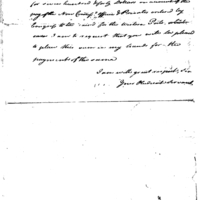 for seven hundred & fifty dollars on account of the
pay of the New Comp.y Officers & Privates ordered by
Congress to be raised for the Western Posts, which
case I am to request that you will be pleased
to place this sum in my hands for the
payment of the same
I am with great respect, Sir
Your Obedient Servant